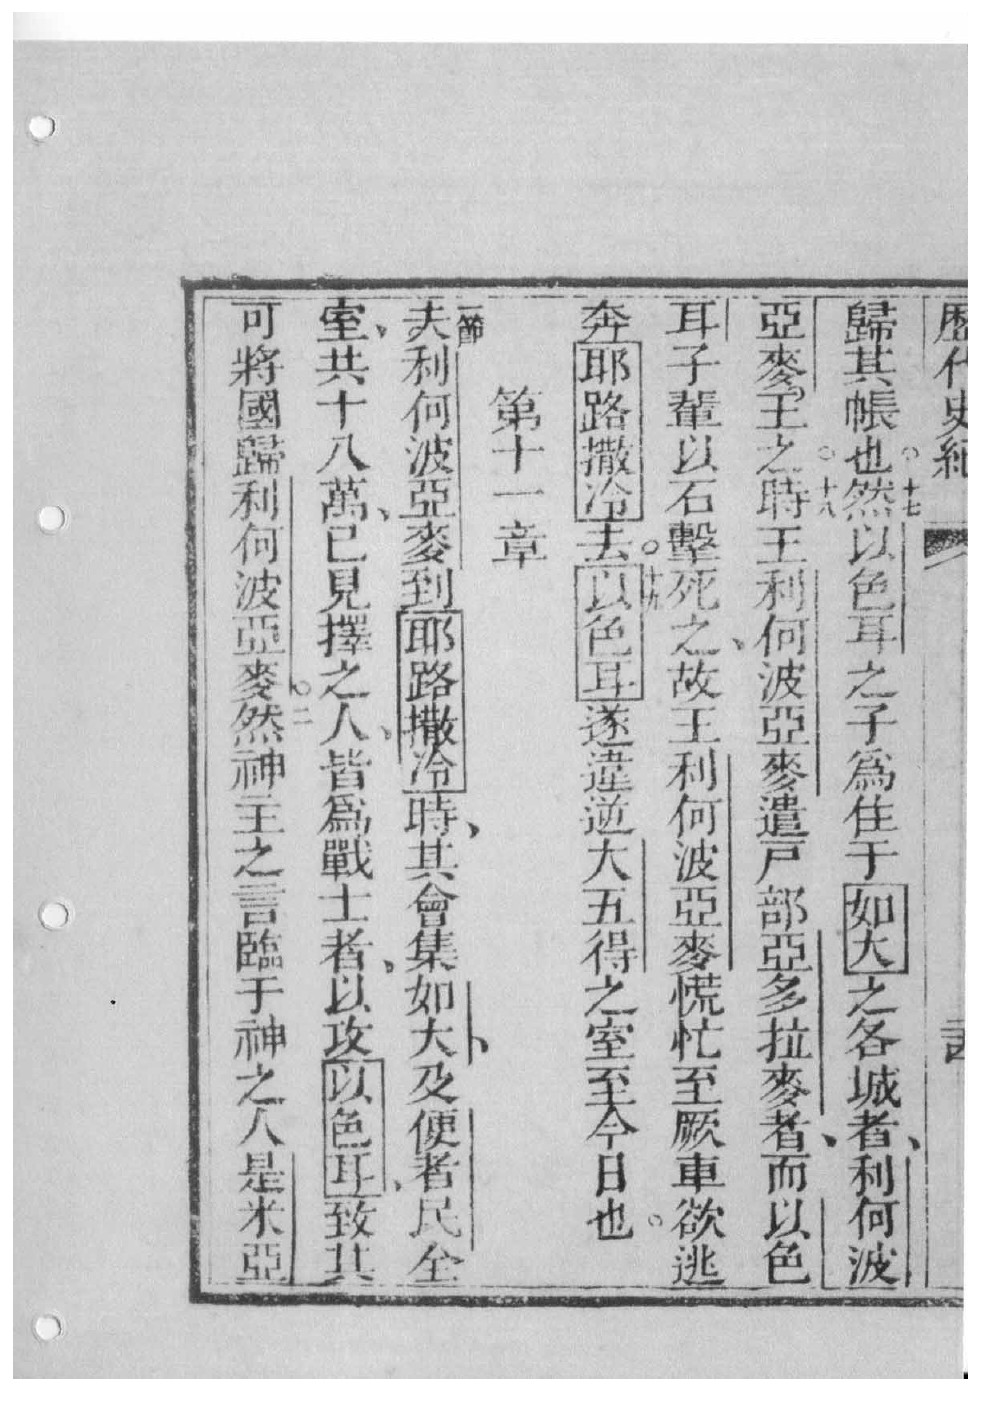 歷代史紀
歸其帳也。十七然以色耳之子爲住于如大之各城者、利何波
亞麥。王之。十八時王利何波亞麥遣戸部亞多拉麥者、而以色
耳子輩以石擊死之、故王利何波亞麥慌忙至厥車欲逃
奔耶路撒冷去。十九以色耳遂違逆大五得之室至今日也。
第十一章
一節夫利何波亞麥到耶路撒冷時、其會集如大、及便者民全
室、共十八萬、已見擇之人、皆爲戰士者、以攻以色耳、致其
可將國歸利何波亞麥。二然神主之言臨于神之人是米亞